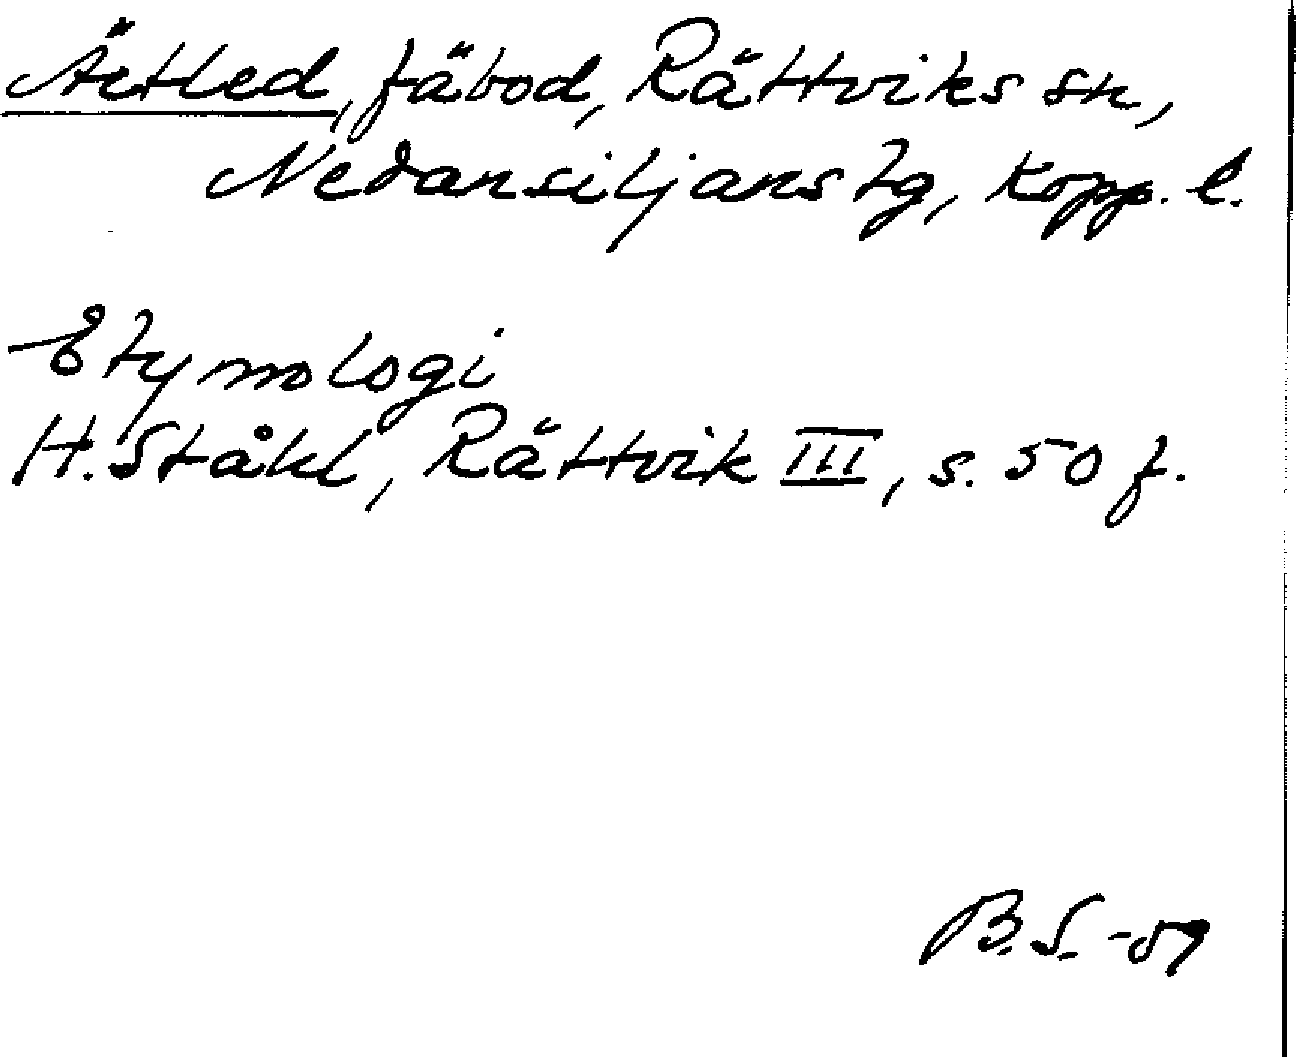 Ärtled, fäbod, Rättviks sn,
Nedansiljans tg, Kopp. l.
Etymologi
H. Ståhl, Rättvik III, s. 50 f.
B.S.